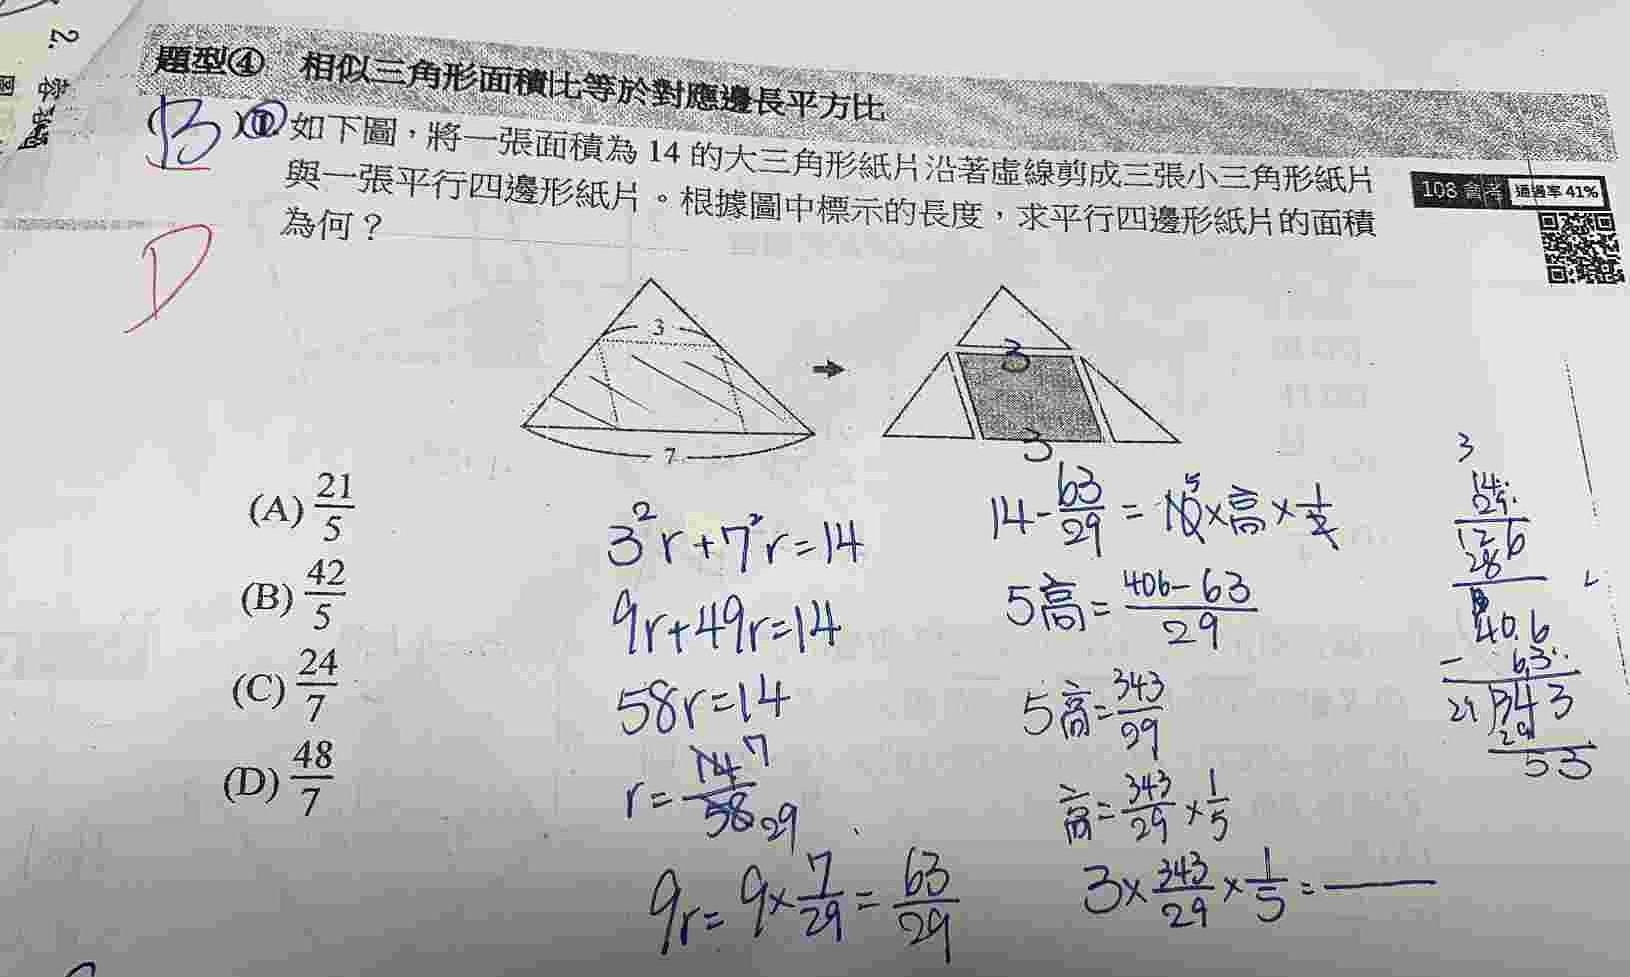 2.
題型④ 相似三角形面積比等於對應邊長平方比
(B)①. 如下圖，將一張面積為 14 的大三角形紙片沿著虛線剪成三張小三角形紙片
與一張平行四邊形紙片。根據圖中標示的長度，求平行四邊形紙片的面積
為何？
108 會考 通過率 41%
D
3
7
3
3
(A) 21/5
(B) 42/5
(C) 24/7
(D) 48/7
3²r+7²r=14
9r+49r=14
58r=14
r=14/58 7/29
9r=9×7/29=63/29
14-63/29=10×高×1/2 5
5高=406-63/29
5高=343/29
高=343/29×1/5
3×343/29×1/5=
3
14
29
126
28
40.6
- 63
29 343
29
53